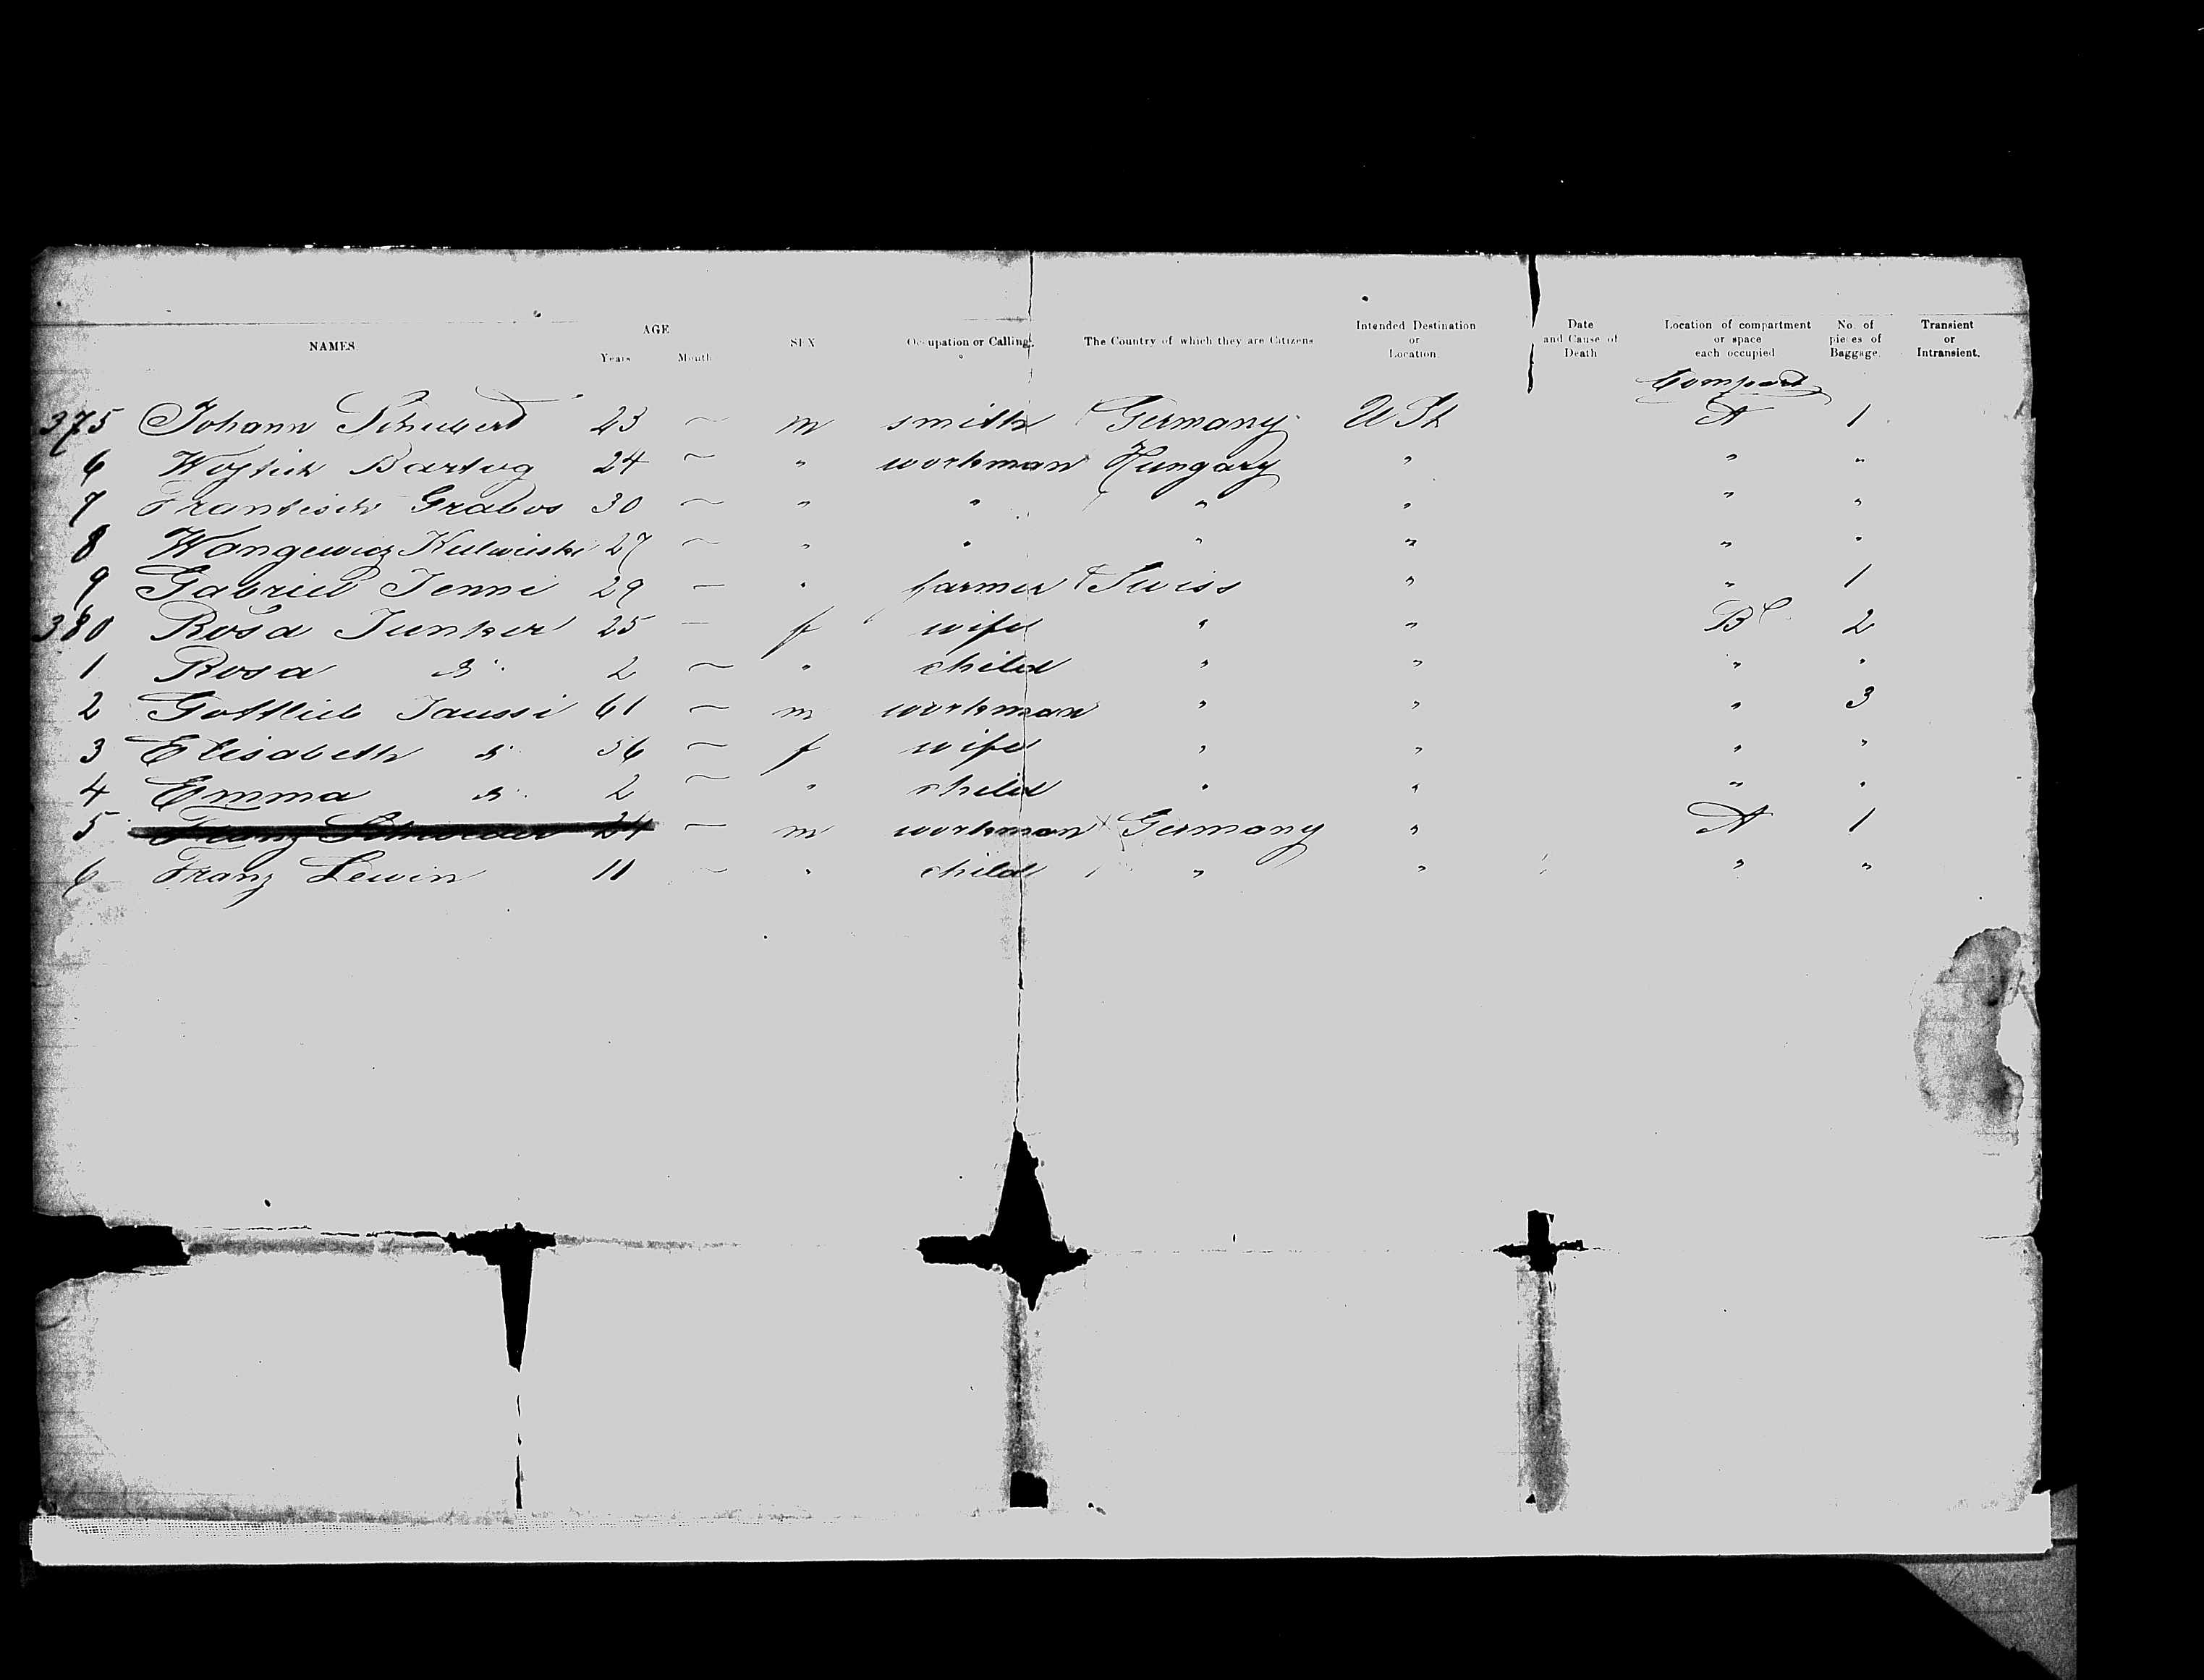 NAMES AGE Years Month SEX Occupation or Calling. The Country of which they are Citizens Intended Destination or Location. Date and Cause of Death Location of compartment or space each occupied No. of pieces of Baggage. Transient or Intransient.
Compart
375 Johann Schubert 23 — m smith Germany USA A 1
6 Wojtich Bartog 24 — " workman Hungary " " "
7 Grabos 30 — " " " " " "
8 Wangewicz 27 — " " " " " "
9 Gabriel Jenni 29 — " farmer Swiss " " 1
380 Rosa Junker 25 — f wife " " B 2
1 Rosa " 2 — " child " " " "
2 Gottlieb Jaussi 61 — m workman " " " 3
3 Elisabeth " 56 — f wife " " " "
4 Emma " 2 — " child " " " "
5 Franz 24 — m workman Germany " A 1
6 Franz Lewin 11 — " child " " " "